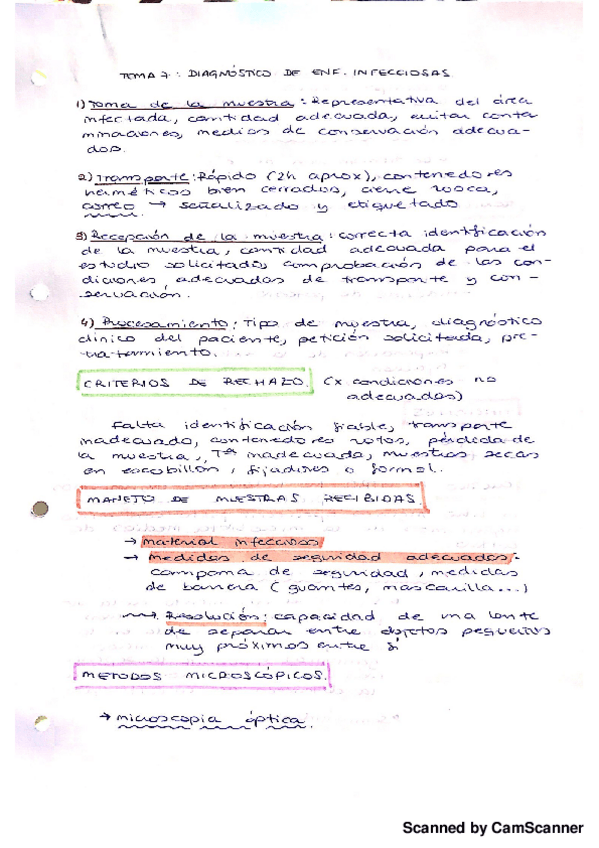 TEMA 7: DIAGNÓSTICO DE ENF. INFECCIOSAS
1) Toma de la muestra: Representativa del área
infectada, cantidad adecuada, evitar conta
minaciones, medios de conservación adecua-
dos.
2) Transporte: Rápido (2h aprox), contenedores
herméticos bien cerrados, cierre rosca,
correo → señalizado y etiquetado
3) Recepción de la muestra: correcta identificación
de la muestra, cantidad adecuada para el
estudio solicitado, comprobación de las con-
diciones adecuadas de transporte y con-
servación.
4) Procesamiento: Tipo de muestra, diagnóstico
clínico del paciente, petición solicitada, pre-
tratamiento.
CRITERIOS DE RECHAZO. (x condiciones no
adecuadas)
Falta identificación fiable, transporte
inadecuado, contenedores rotos, pérdida de
la muestra, Tª inadecuada, muestras secas
en escobillón, fijadores o formol.
MANEJO DE MUESTRAS RECIBIDAS.
→ material infeccioso
→ medidas de seguridad adecuadas:
campana de seguridad, medidas
de barrera (guantes, mascarilla...)
Resolución: capacidad de una lente
de separar entre objetos pequeños
muy próximos entre sí
METODOS MICROSCÓPICOS.
→ microscopia óptica.
Scanned by CamScanner